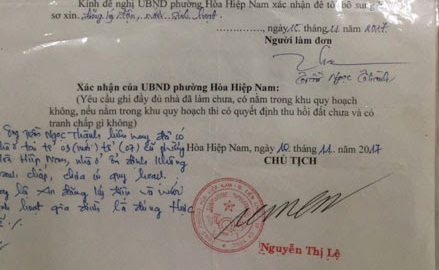 Kính đề nghị UBND phường Hòa Hiệp Nam xác nhận để tôi bổ su
sơ xin
, ngày 10 tháng 11 năm 2017
Người làm đơn
Trần Ngọc Thành
Xác nhận của UBND phường Hòa Hiệp Nam:
(Yêu cầu ghi đầy đủ nhà đã làm chưa, có nằm trong khu quy hoạch
không, nếu nằm trong khu quy hoạch thì có quyết định thu hồi đất chưa và có
tranh chấp gì không)
Ông Trần Ngọc Thành hiện nay đã có
ở tại tổ 03 (mới) tổ (07) cũ phường
Hiệp Nam, nhà ở ổn định không
chấp, chưa có quy hoạch.
xin đăng ký điện và nước
hoạt gia đình là đúng thực
Hòa Hiệp Nam, ngày 10 tháng 11 năm 2017
CHỦ TỊCH
Nguyễn Thị Lệ